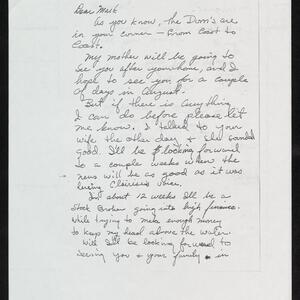 Dear Mark
As you know, the Dom's are
in your corner - from Coast to
Coast.
My mother will be going to
see you after your home, and I
hope to see you for a couple
of days in August.
But if there is anything
I can do before please let
me know. I talked to your
wife the other day & she sounded
good. I'll be looking forward
to a couple weeks when the
news will be as good as it was
hearing voice.
In about 12 weeks I'll be a
Stock Broker going into high finance.
While trying to make enough money
to keep my head above the water.
Well I'll be looking forward to
seeing you & your family in